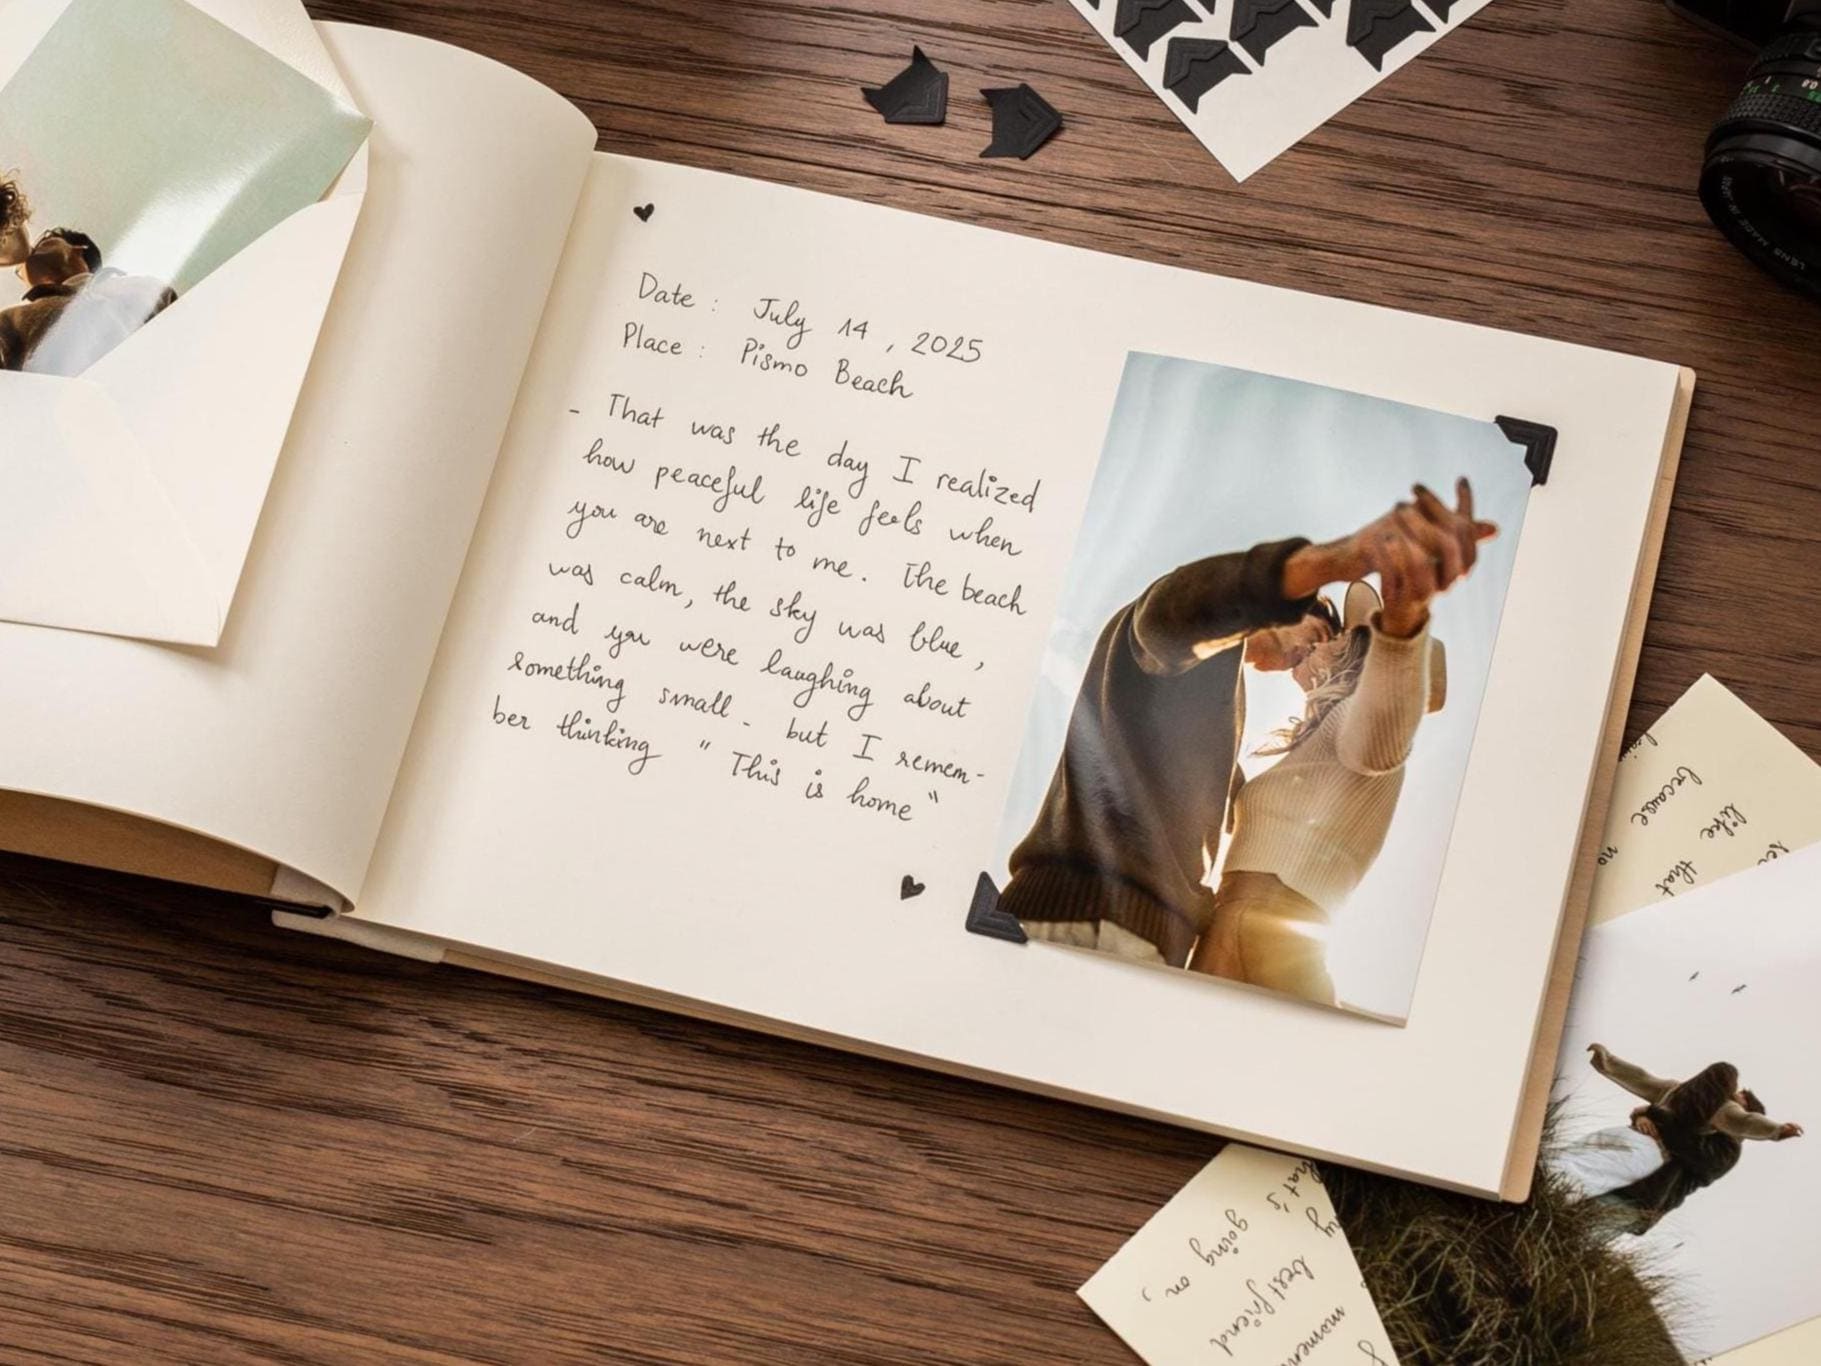 Date : July 14 , 2025
Place : Pismo Beach
- That was the day I realized
how peaceful life feels when
you are next to me. The beach
was calm, the sky was blue,
and you were laughing about
something small - but I remem-
ber thinking " This is home "
because
like
that
no
going on,
best friend
LENS MADE IN JAPAN